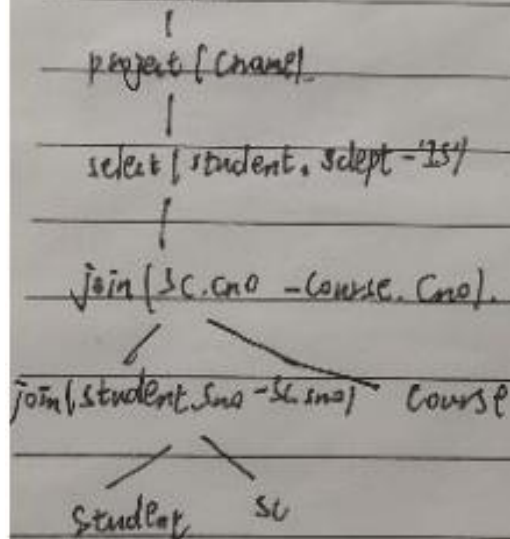 project (Cname)
select (student. Sdept - 'IS')
join (SC.Cno - Course. Cno).
join (Student.Sno - SC.Sno) Course
Student SC